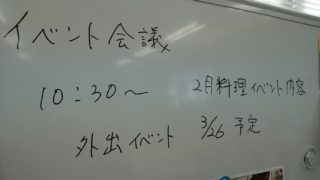 イベント会議
10:30〜 2月料理イベント内容
外出イベント 3/26 予定